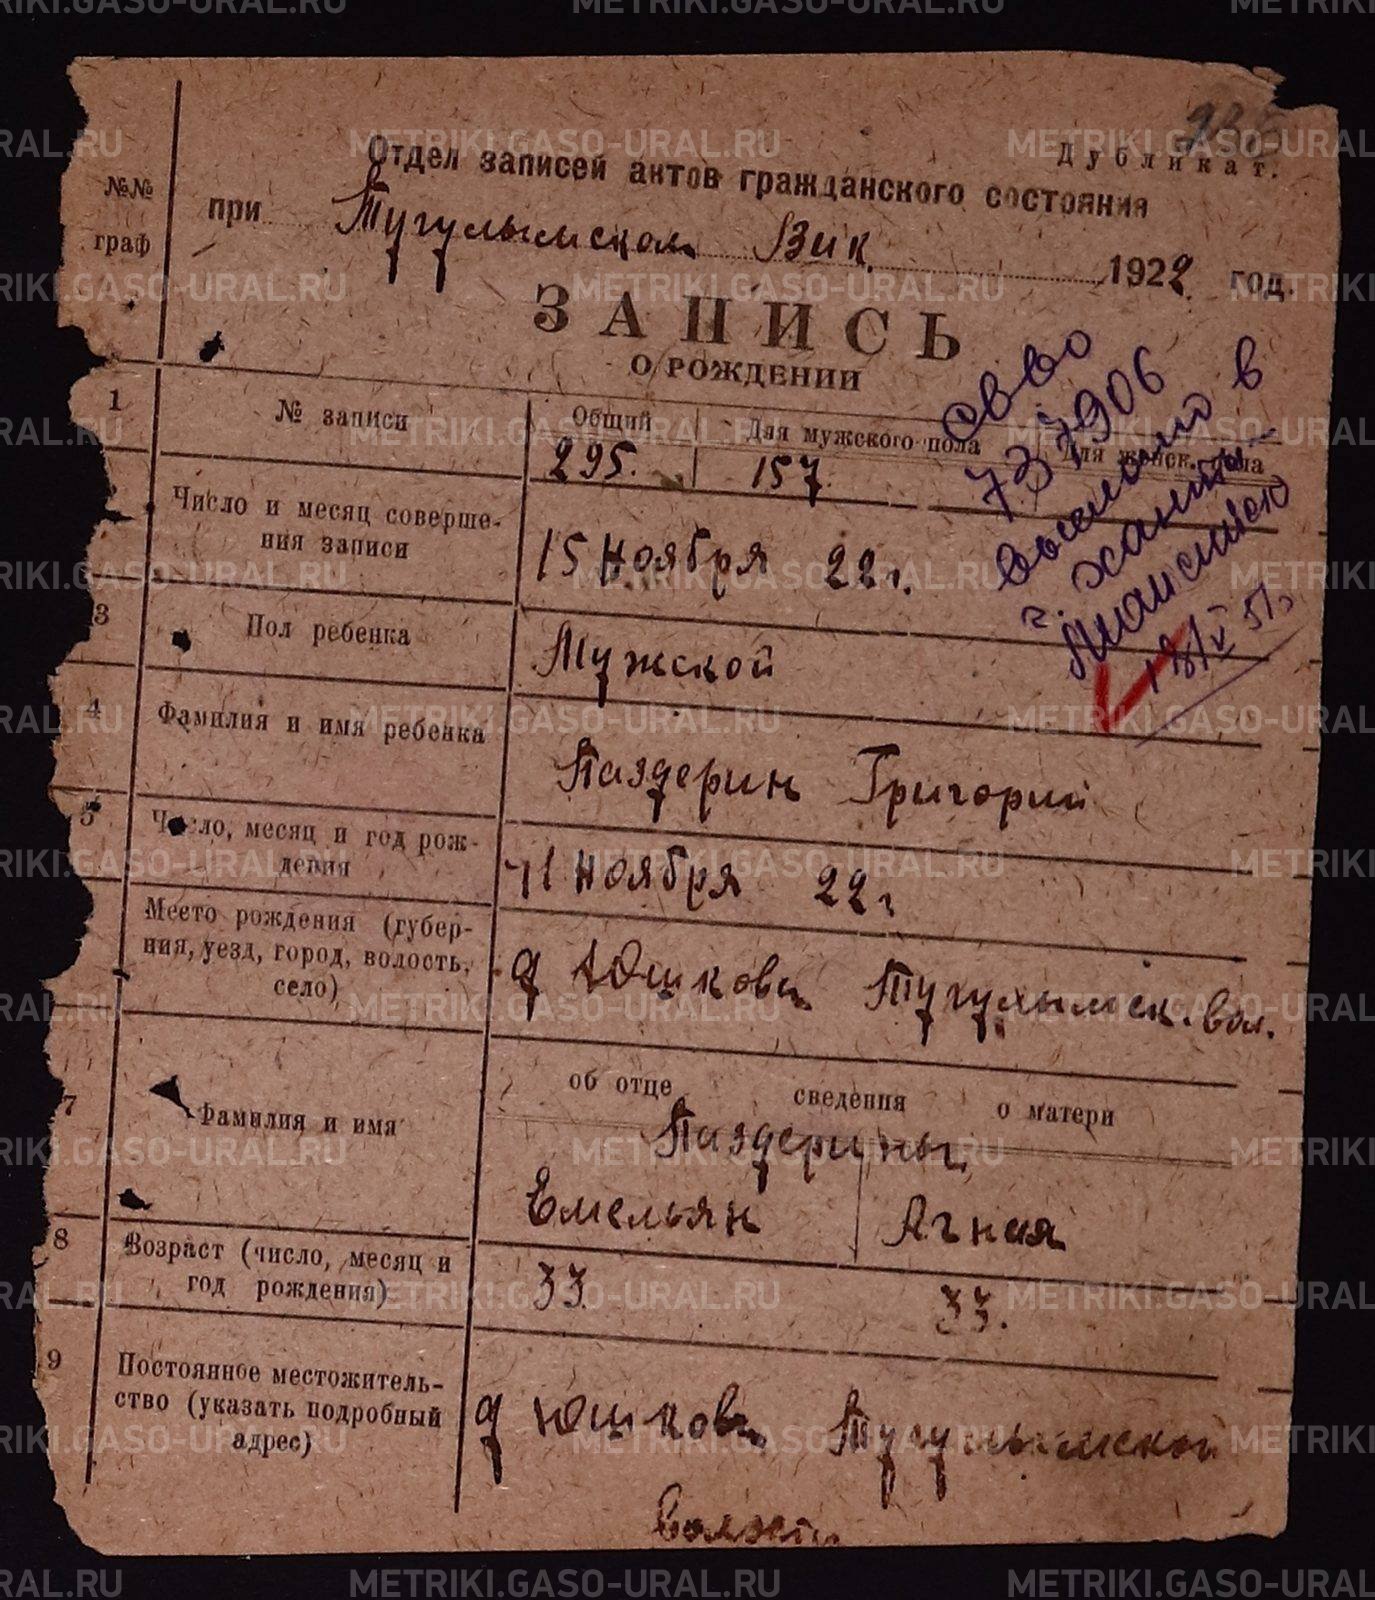 Дубликат.
Отдел записей актов гражданского состояния
№№ граф
при Тугулымском Вик 1922 год.
ЗАПИСЬ
О РОЖДЕНИИ
св-во
737906
выслано в
г. Ханты-
Мансийск
18/V 51г.
1 № записи Общий Для мужского пола Для женск. пола
295. 157.
Число и месяц соверше-
ния записи
15 Ноября 22г.
3 Пол ребенка Мужской
4 Фамилия и имя ребенка Паздерин Григорий
5 Число, месяц и год рож-
дения
11 Ноября 22г
Место рождения (губер-
ния, уезд, город, волость,
село)
д Юшкова Тугулымск. вол.
об отце сведения о матери
7 Фамилия и имя Паздерины
Емельян Агния
8 Возраст (число, месяц и
год рождения)
33 33.
9 Постоянное местожитель-
ство (указать подробный
адрес)
д Юшкова Тугулымской
волости
METRIKI.GASO-URAL.RU